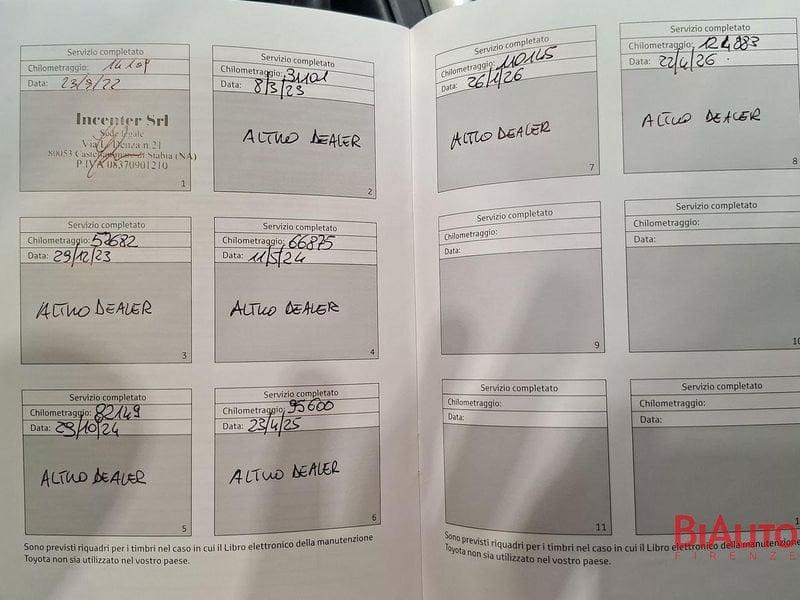 Servizio completato
Chilometraggio: 14109
Data: 23/9/22
Incenter Srl
Sede legale
Via L. Denza n.21
80053 Castellammare di Stabia (NA)
P.IVA 08370901210
1
Servizio completato
Chilometraggio: 31101
Data: 8/3/23
ALTRO DEALER
2
Servizio completato
Chilometraggio: 52682
Data: 29/12/23
ALTRO DEALER
3
Servizio completato
Chilometraggio: 66875
Data: 11/5/24
ALTRO DEALER
4
Servizio completato
Chilometraggio: 82149
Data: 29/10/24
ALTRO DEALER
5
Servizio completato
Chilometraggio: 95600
Data: 23/4/25
ALTRO DEALER
6
Sono previsti riquadri per i timbri nel caso in cui il Libro elettronico della manutenzione
Toyota non sia utilizzato nel vostro paese.
Servizio completato
Chilometraggio: 110145
Data: 26/1/26
ALTRO DEALER
7
Servizio completato
Chilometraggio: 124883
Data: 22/4/26
ALTRO DEALER
8
Servizio completato
Chilometraggio:
Data:
9
Servizio completato
Chilometraggio:
Data:
10
Servizio completato
Chilometraggio:
Data:
11
Servizio completato
Chilometraggio:
Data:
Sono previsti riquadri per i timbri nel caso in cui il Libro elettronico della manutenzione
Toyota non sia utilizzato nel vostro paese.
BIAUTO
FIRENZE